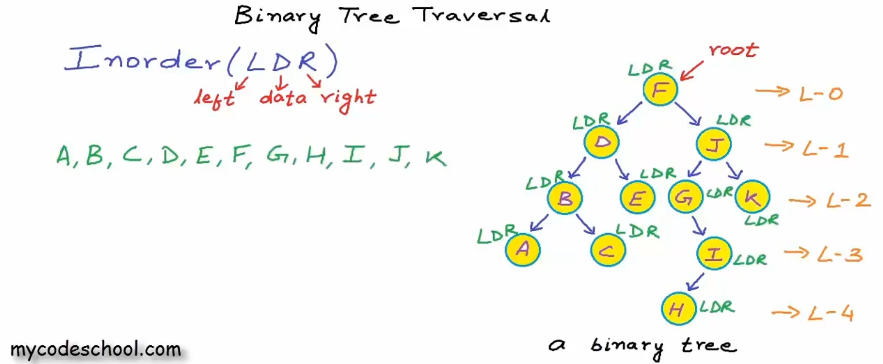 Binary Tree Traversal
Inorder(LDR)
left data right
A, B, C, D, E, F, G, H, I, J, K
root
LDR
F
→ L-0
LDR
LDR
D
J
→ L-1
LDR
LDR
B
E
G
LDR
K
LDR
→ L-2
LDR
LDR
A
C
I
LDR
→ L-3
H
LDR
→ L-4
a binary tree
mycodeschool.com